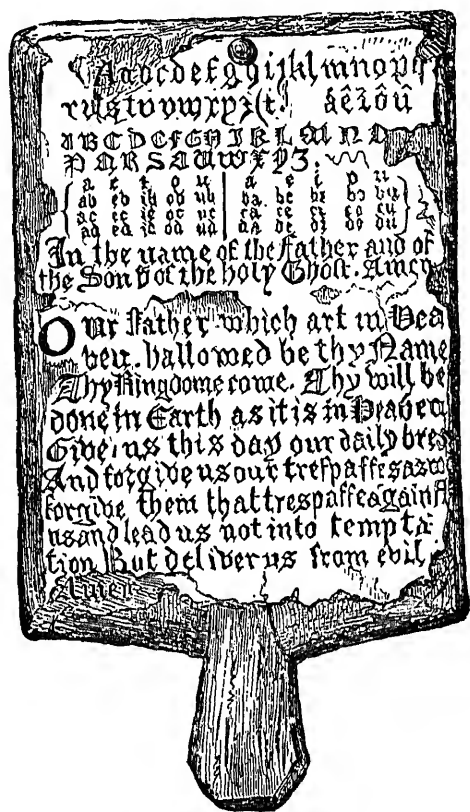 Aabcdefghijklmnopq
rsstuvwxyz&t. âêîôû
ABCDEFGHIJKLMNO
PQRSTUWXYZ.
a e i o u a e i o u
ab eb ib ob ub ba be bi bo bu
ac ec ic oc uc ca ce ci co cu
ad ed id od ud da de di do du
In the name of the Father and of
the Son & of the holy Ghost. Amen
Our Father which art in Hea
ven. hallowed be thy Name
Thy Kingdome come. Thy will be
done in Earth as it is in Heaven
Give us this day our daily brea
And forgive us our trespasses as we
forgive them that trespasse against
us and lead us not into tempta
tion But deliver us from evil
Amen